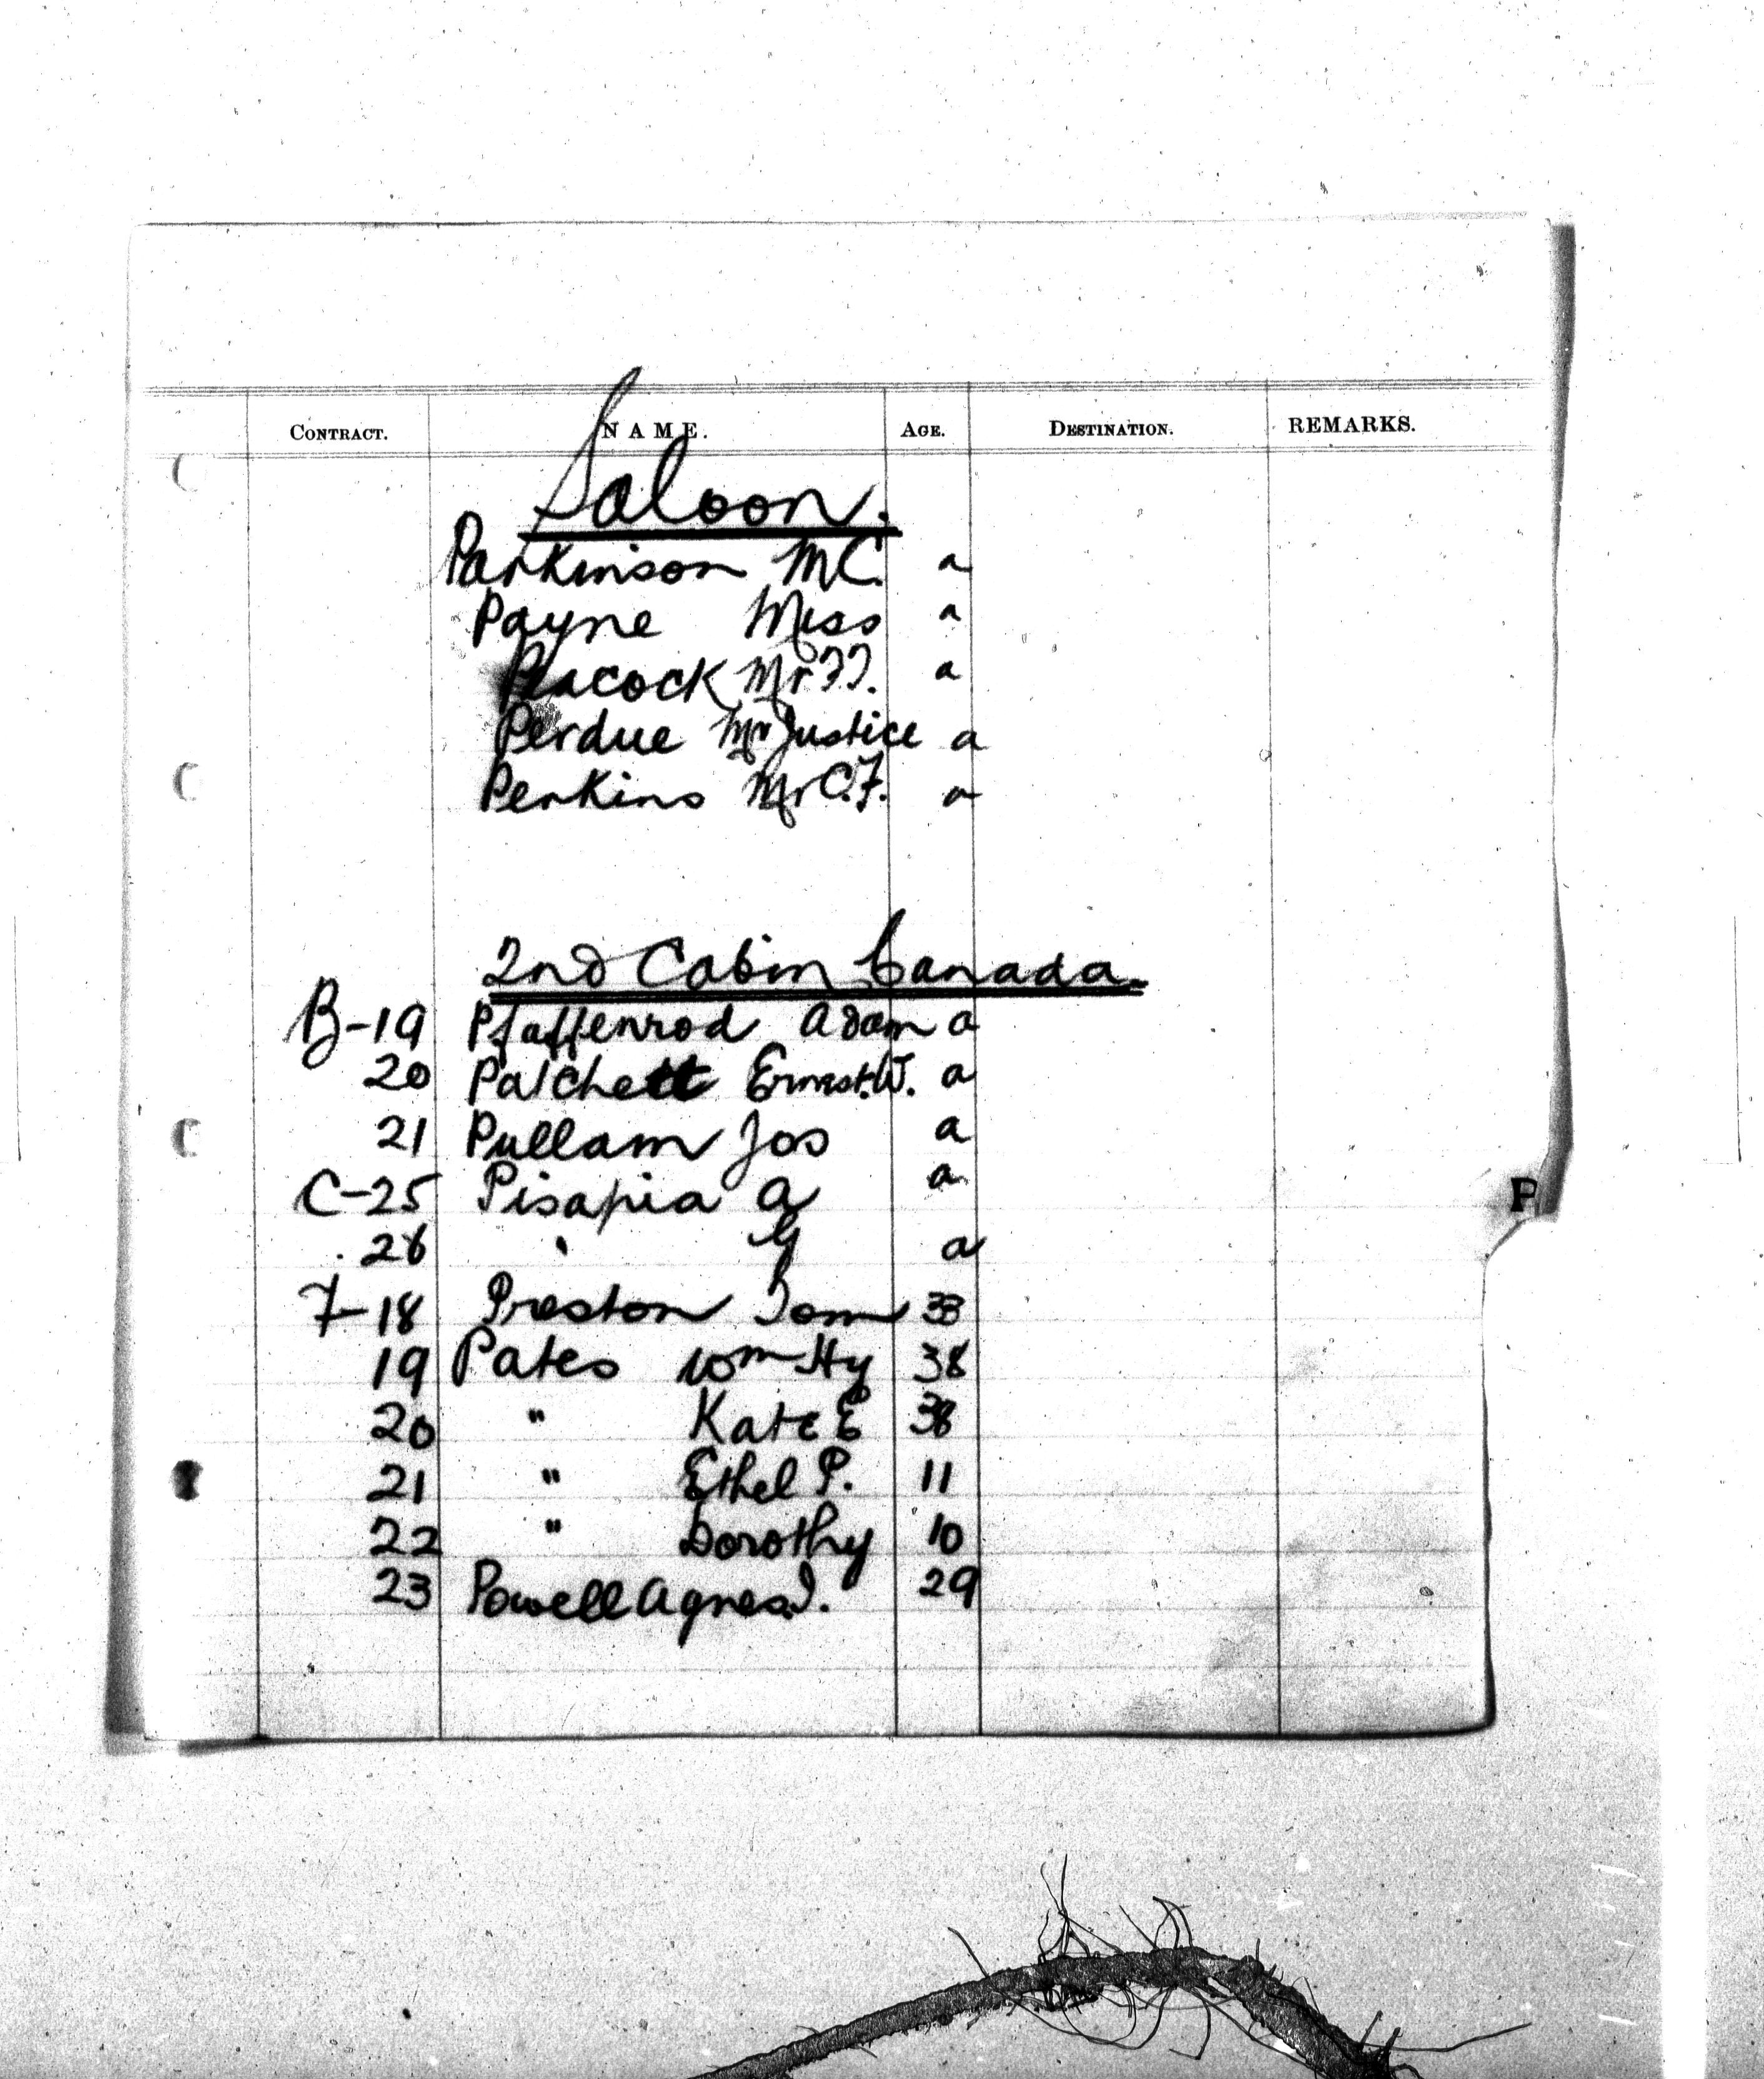 CONTRACT. NAME. AGE. DESTINATION. REMARKS.
Saloon.
Parkinson MC. a
Payne Miss a
Peacock Mr F.F. a
Perdue Mr Justice a
Perkins Mr C.F. a
2nd Cabin Canada.
B-19 Pfaffenrod Adam a
20 Patchett Ernest.W. a
21 Pullam Jos a
C-25 Pisapia A a
26 " G a
P
F-18 Preston Tom 33
19 Pates Wm Hy 38
20 " Kate E 38
21 " Ethel P. 11
22 " Dorothy 10
23 Powell Agnes J. 29